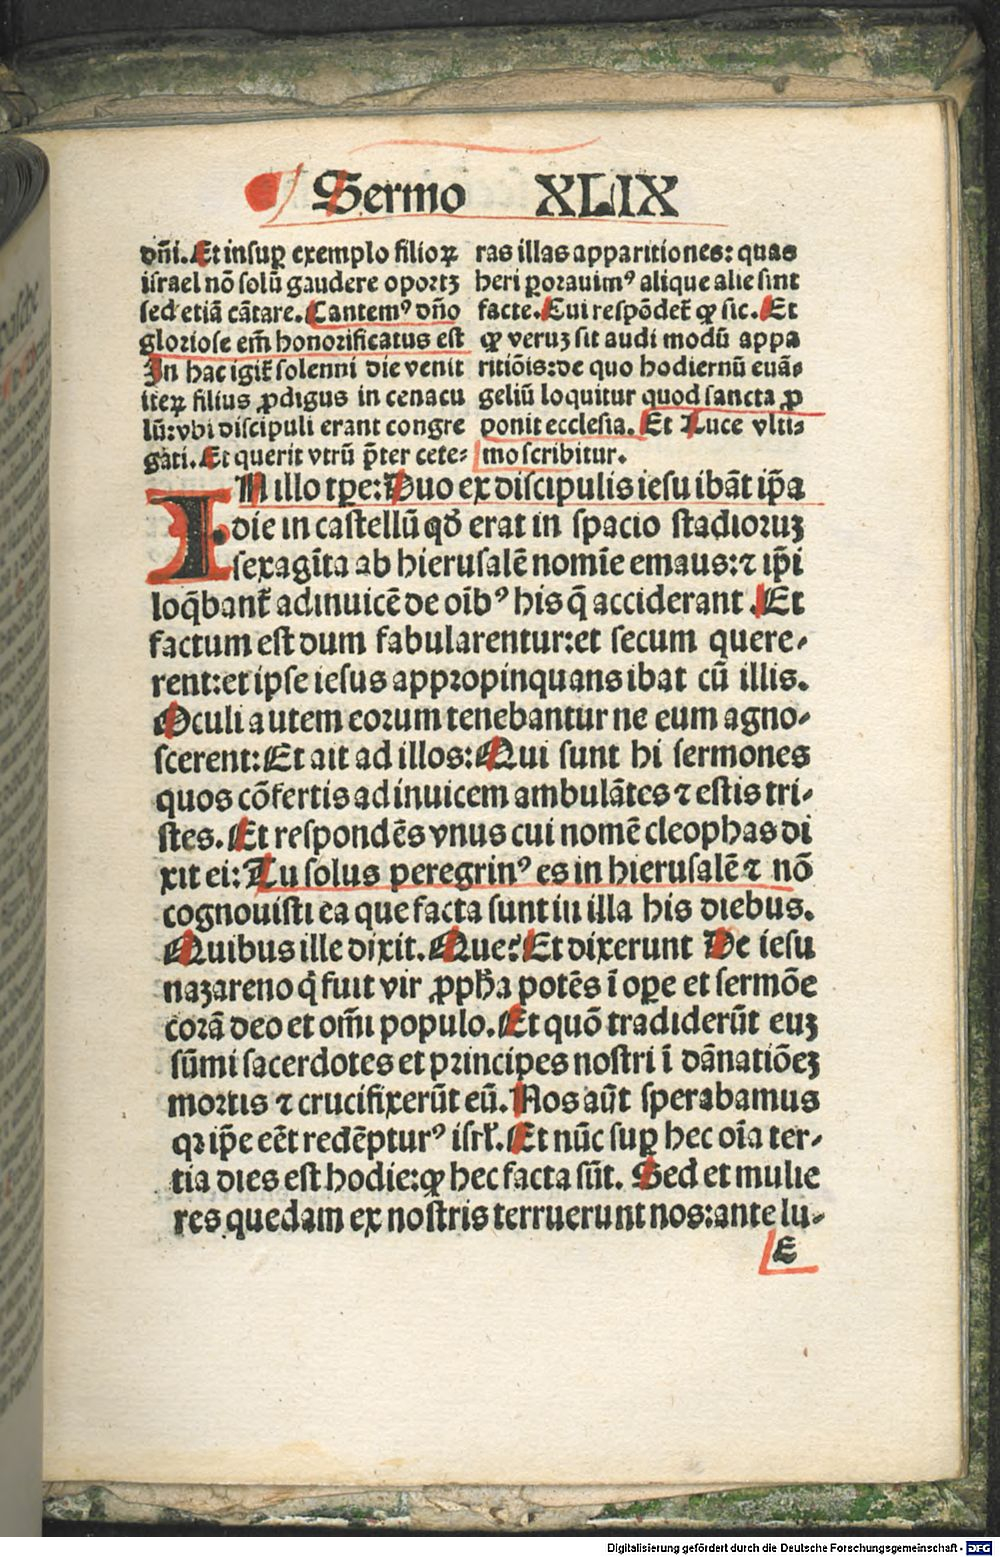 Sermo XLIX
dn̄i. Et insuꝑ exemplo filioꝝ
israel nō solū gaudere oportꝫ
sed etiā cātare. Cantemꝰ dn̄o
gloriose em̄ honorificatus est
In hac igit̄ solenni die venit
iteꝝ filius ꝓdigus in cenacu
lū: vbi discipuli erant congre
gati. Et querit vtrū p̄ter cete⸗
ras illas apparitiones: quas
heri ꝑorauimꝰ alique alie sint
facte. Cui respōdet̄ ꝙ sic. Et
ꝙ veruꝫ sit audi modū appa
ritiōis: de quo hodiernū euā⸗
geliū loquitur quod sancta ꝓ
ponit ecclesia. Et Luce vlti⸗
mo scribitur.
IN illo tꝑe: Duo ex discipulis iesu ibāt ip̄a
die in castellū qđ erat in spacio stadioruꝫ
sexagīta ab hierusalē nomīe emaus: ⁊ ip̄i
loq̄bant̄ adinuicē de oībꝰ his q̄ acciderant. Et
factum est dum fabularentur: et secum quere⸗
rent: et ipse iesus appropinquans ibat cū illis.
Oculi autem eorum tenebantur ne eum agno⸗
scerent: Et ait ad illos: Qui sunt hi sermones
quos cōfertis adinuicem ambulātes ⁊ estis tri⸗
stes. Et respondēs vnus cui nomē cleophas di
xit ei: Tu solus peregrinꝰ es in hierusalē ⁊ nō
cognouisti ea que facta sunt in illa his diebus.
Quibus ille dixit. Que? Et dixerunt De iesu
nazareno q̄ fuit vir ꝓph̄a potēs ī oꝑe et sermōe
corā deo et om̄i populo. Et quō tradiderūt euꝫ
sūmi sacerdotes et principes nostri ī dānatiōeꝫ
mortis ⁊ crucifixerūt eū. Nos aūt sperabamus
qꝛ ip̄e eēt redēpturꝰ isrl̄. Et nūc suꝑ hec oīa ter⸗
tia dies est hodie: ꝙ hec facta sūt. Sed et mulie
res quedam ex nostris terruerunt nos: ante lu⸗
E
Digitalisierung gefördert durch die Deutsche Forschungsgemeinschaft - DFG